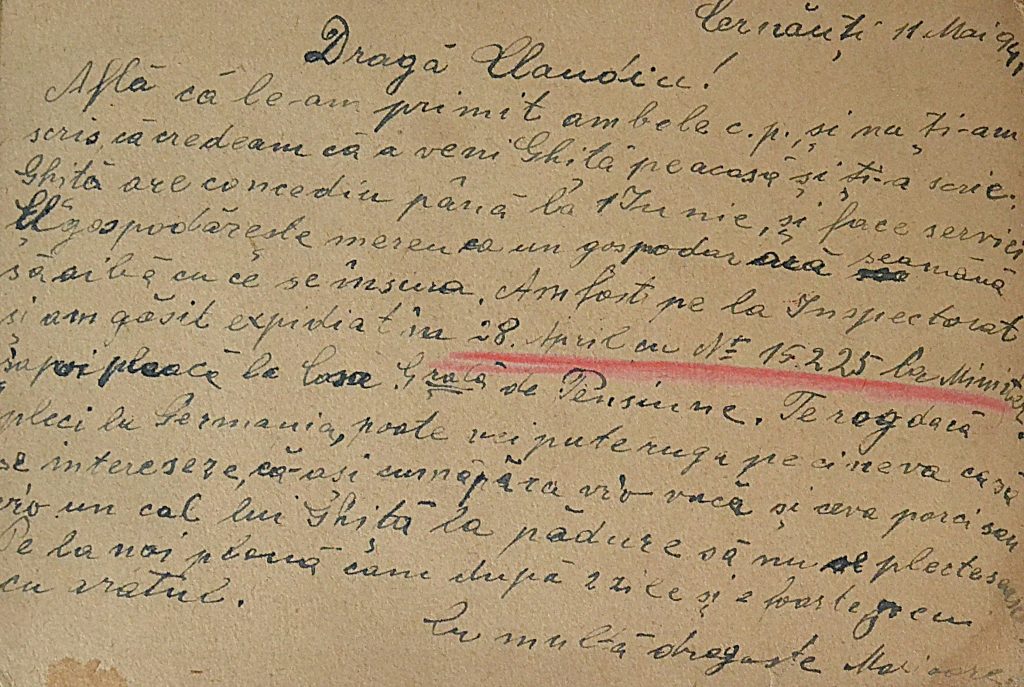 Cernăuți 11 Mai 941
Dragă Claudiu!
Află că le-am primit ambele c.p., și nu ți-am
scris, că credeam că a veni Ghiță pe acasă și ți-a scrie.
Ghiță are concediu până la 1 Iunie, și face servici
El gospodărește mereu ca un gospodar seamănă
să aibă cu ce se însura. Am fost pe la Inspectorat
și am găsit expidiat în 28. April cu Nr 15.225 la Minister.
apoi pleacă la Casa Grală de Pensiune. Te rog dacă
pleci la Germania, poate vei pute ruga pe cineva ca să
se intereseze, că-ași cumăpăra vr'o vacă și ceva porci sau
vr'o un cal lui Ghiță la pădure să nu se plectasească.
Pe la noi plouă cam după 2 zile și e foarte greu
cu aratul.
Cu multă dragoste